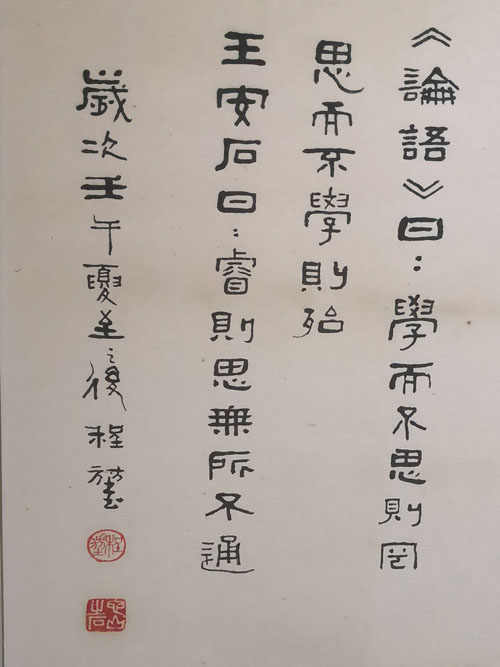 《論語》曰：學而不思則罔
思而不學則殆
王安石曰：睿則思無所不通
歲次壬午夏至後程